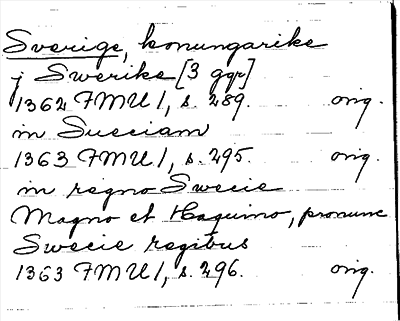 Sverige, konungarike
j Swerike [3 ggr]
1362 FMU 1, s. 289. orig.
in Sueciam
1363 FMU 1, s. 295. orig.
in regno Swecie
Magno et Haquino, pronunc
Swecie regibus
1363 FMU 1, s. 296. orig.